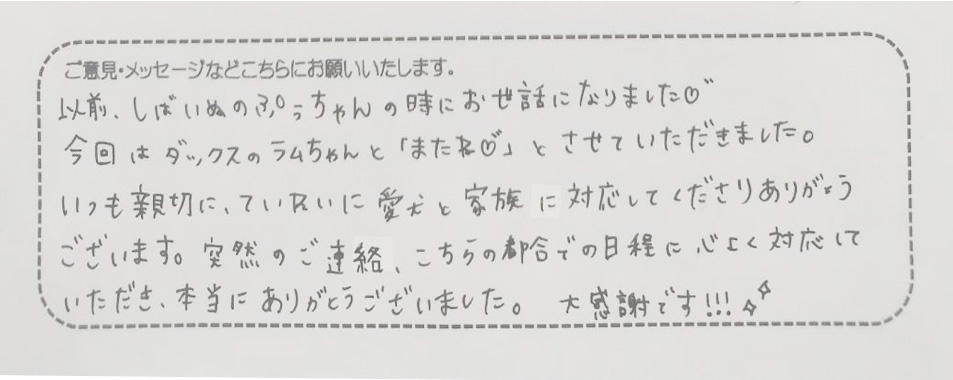 ご意見・メッセージなどこちらにお願いいたします。
以前、しばいぬのぷぅちゃんの時にお世話になりました♡
今回はダックスのラムちゃんと「またね♡」とさせていただきました。
いつも親切に、ていねいに愛犬と家族に対応してくださりありがとう
ございます。突然のご連絡、こちらの都合での日程に心よく対応して
いただき、本当にありがとうございました。 大感謝です!!!